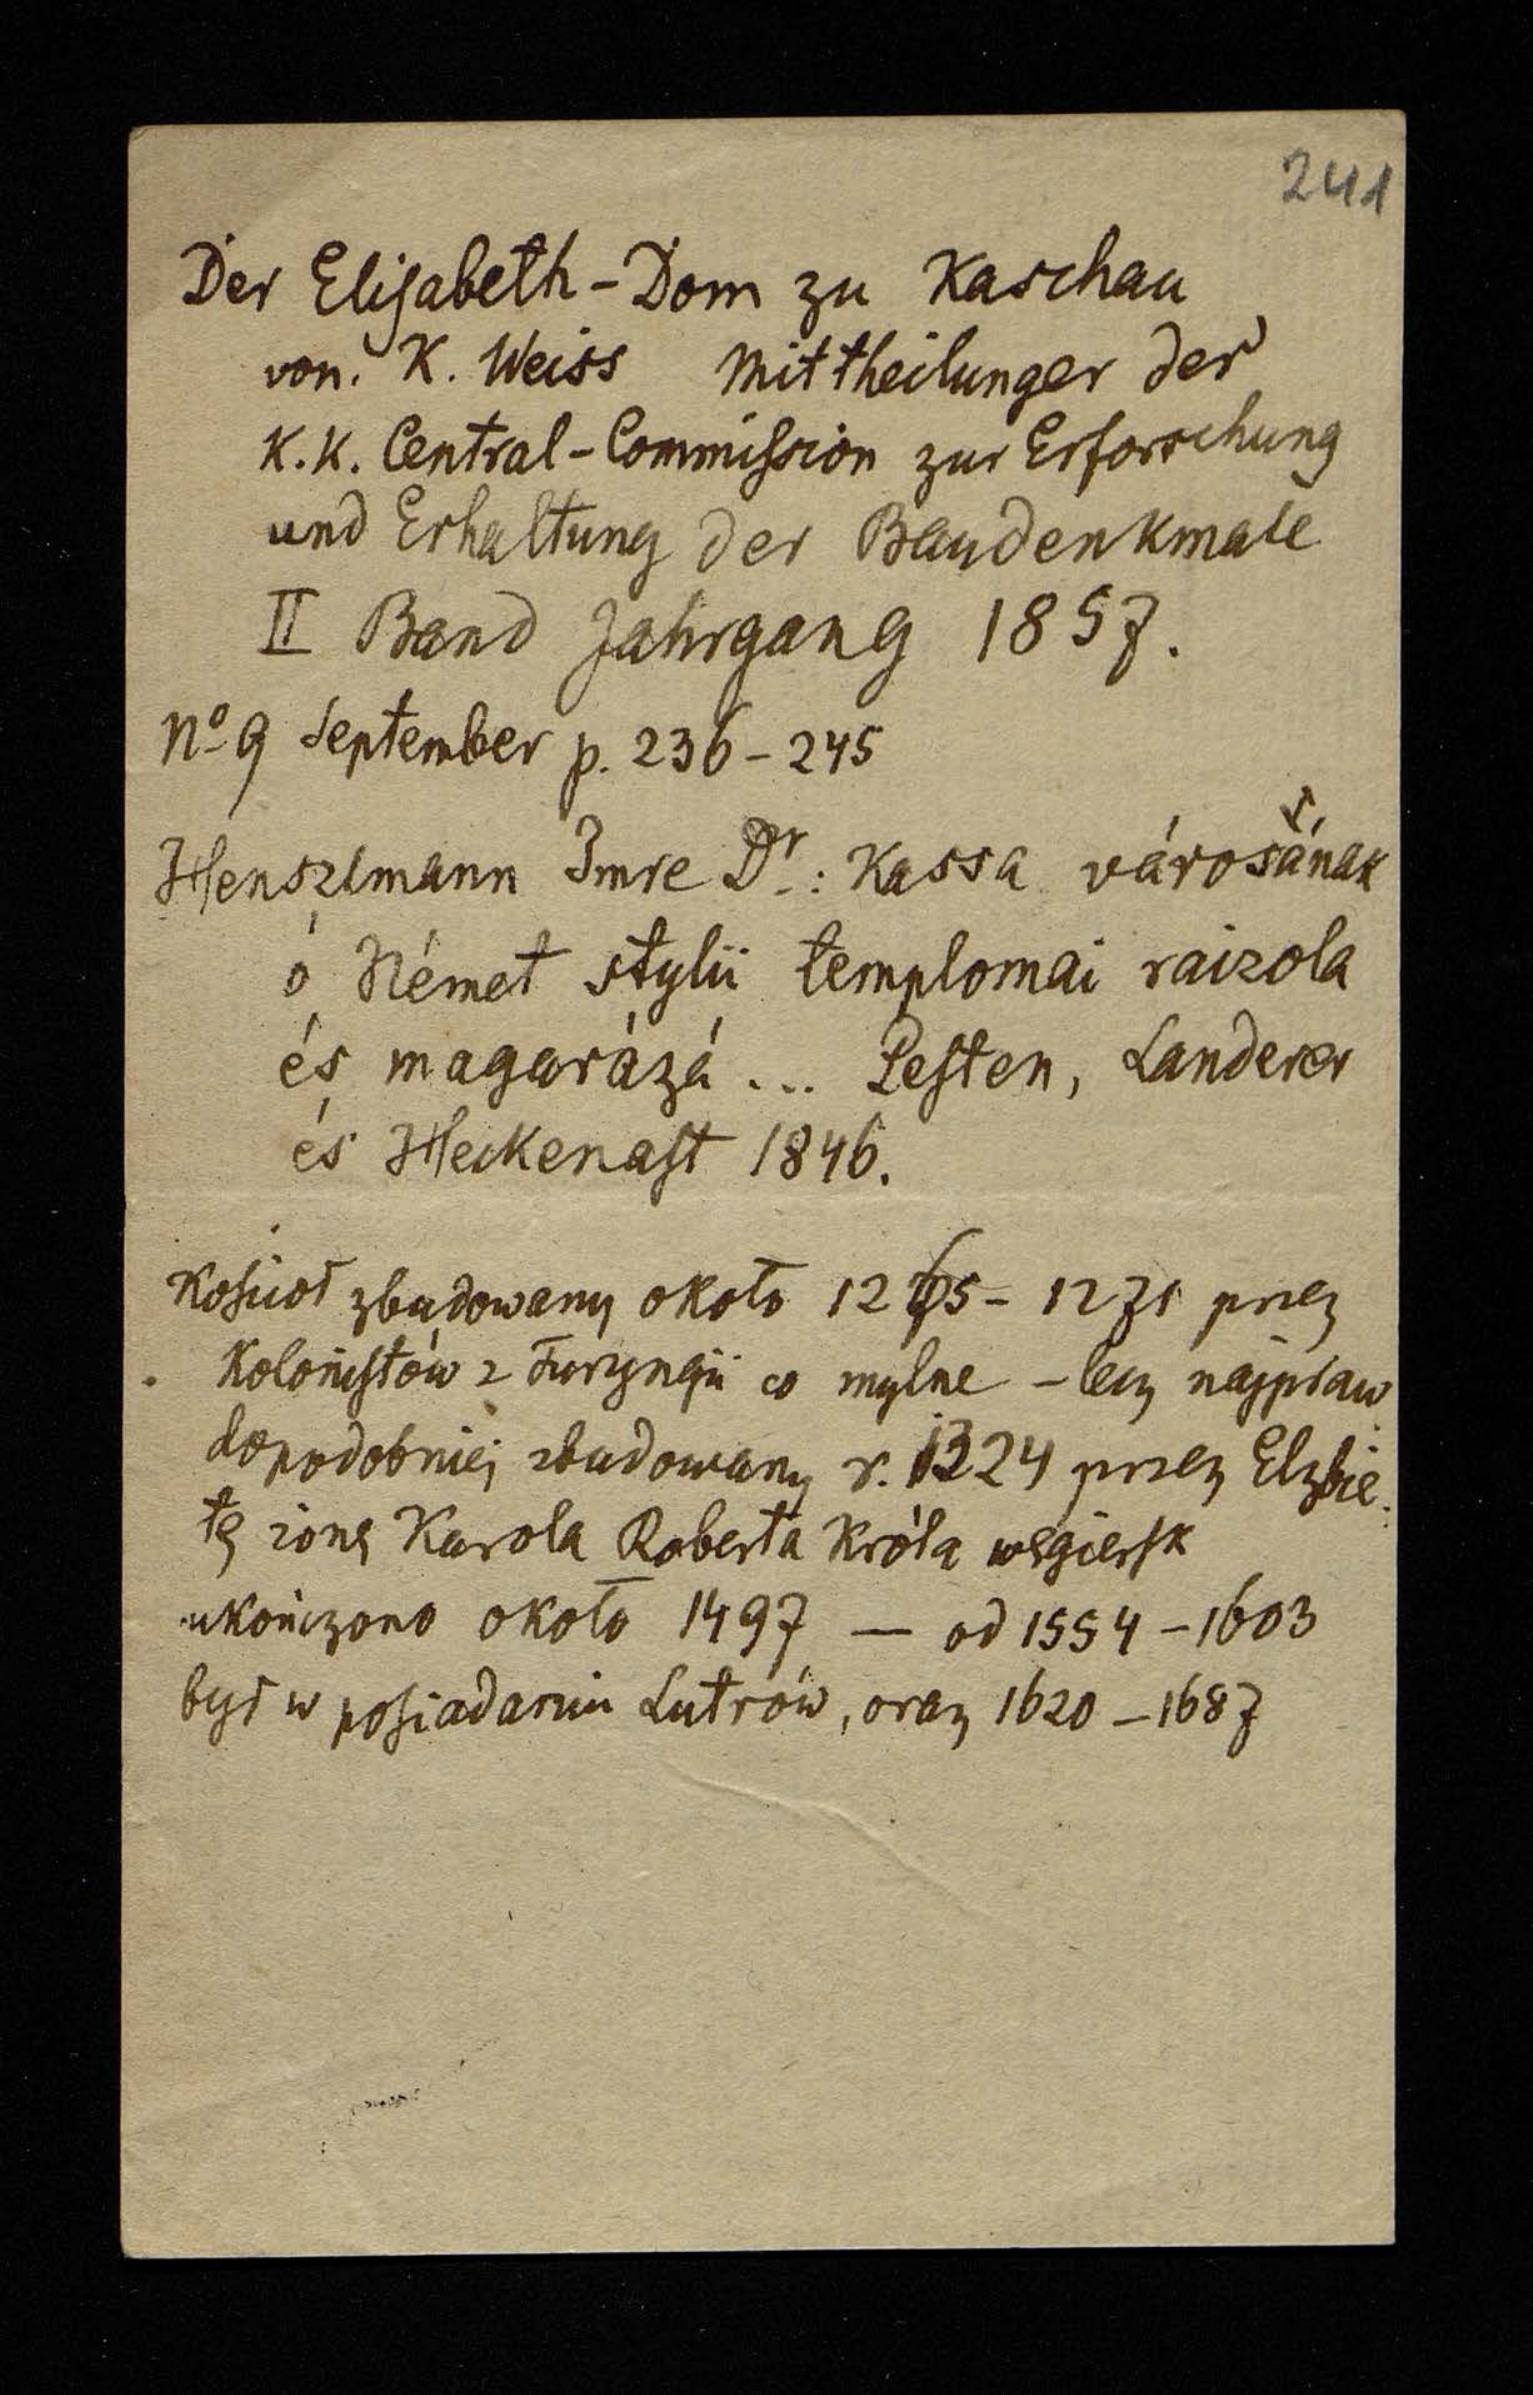 241
Der Elisabeth-Dom zu Kaschau
von. K. Weiss Mittheilungen der
K.K. Central-Commission zur Erforschung
und Erhaltung der Baudenkmale
II Band Jahrgang 1857.
No 9 September p. 236-245
Henszlmann Imre Dr.: Kassa városának
ó Német stylü templomai raizola
és magarázá ... Pesten, Landerer
és Heckenast 1846.
Kościoł zbudowany około 1265 - 1271 przez
Kolonistów z Turyngii co mylne - lecz najpraw
dopodobniej zbudowany r. 1324 przez Elzbie
tę zonę Karola Roberta Króla węgiersk
ukończono około 1497 — od 1554 - 1603
był w posiadaniu Lutrów, oraz 1620 - 1687